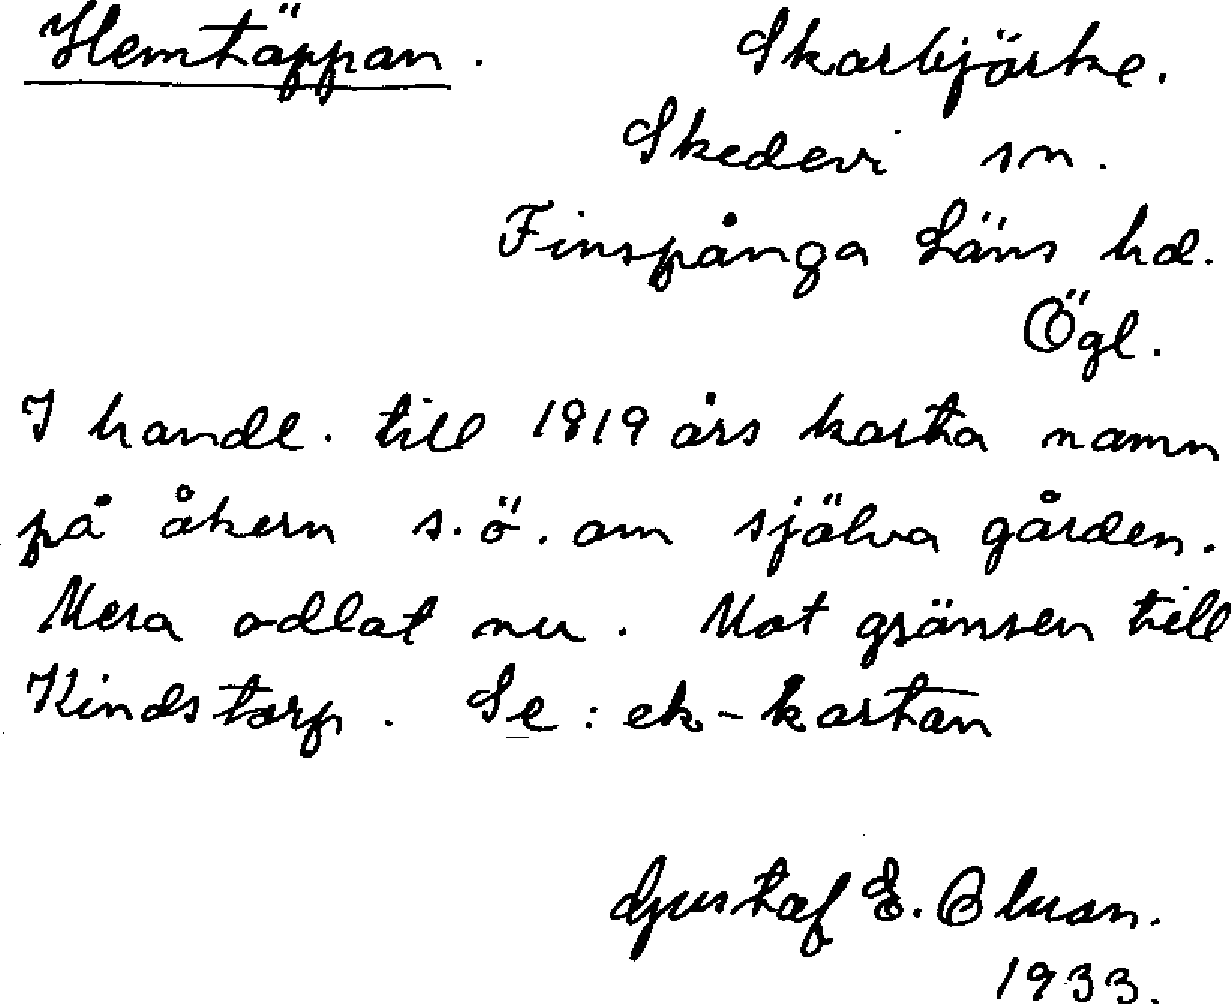 Hemtäppan. Skarbjörke.
Skedevi sn.
Finspånga Läns hd.
Ögl.
I handl. till 1819 års karta namn
på åkern s.ö. om själva gården.
Mera odlat nu. Mot gränsen till
Kindstorp. Se: ek-kartan
Gustaf E.
1933.